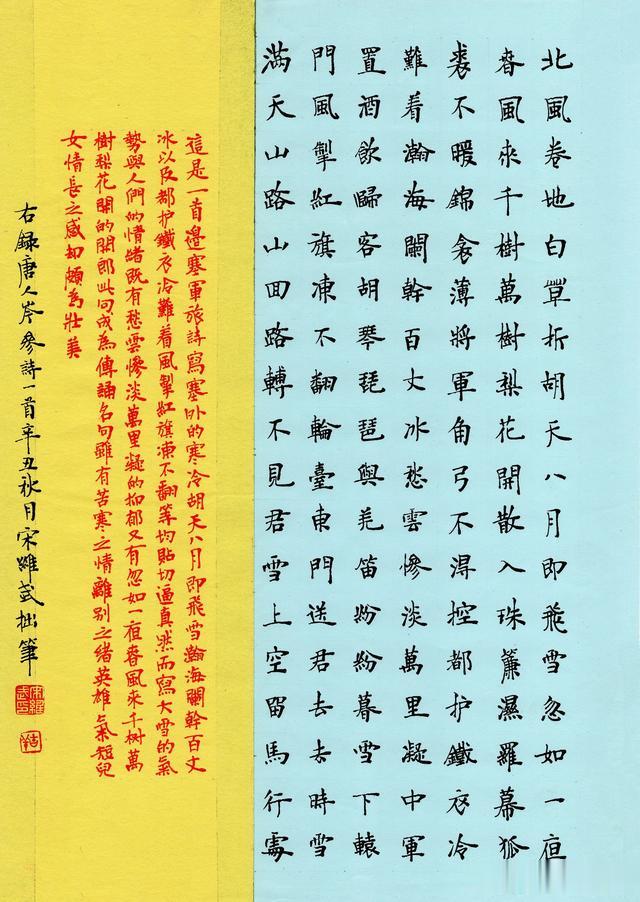 北風卷地白草折胡天八月即飛雪忽如一夜
春風來千樹萬樹梨花開散入珠簾濕羅幕狐
裘不暖錦衾薄將軍角弓不得控都护鐵衣冷
難着瀚海闌幹百丈冰愁雲慘淡萬里凝中軍
置酒飲歸客胡琴琵琶與羌笛紛紛暮雪下轅
門風掣紅旗凍不翻輪臺東門送君去去時雪
滿天山路山回路轉不見君雪上空留馬行處
這是一首邊塞軍旅詩寫塞外的寒冷胡天八月即飛雪瀚海闌幹百丈
冰以及都护鐵衣冷難着風掣紅旗凍不翻等均貼切逼真然而寫大雪的氣
勢與人們的情緒既有愁雲慘淡萬里凝的抑郁又有忽如一夜春風來千树萬
樹梨花開的開郎此句成為傳誦名句雖有苦寒之情離別之緒英雄氣短兒
女情長之感却頗為壯美
右録唐人岑參詩一首辛丑秋月宋維武拙筆